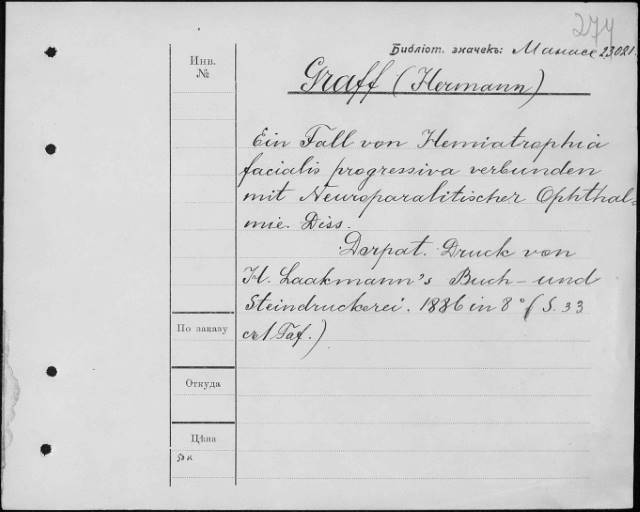 274
Библіот. значекъ: Манасс 23021.
Инв.
№
Graff (Hermann)
Ein Fall von Hemiatrophia
facialis progressiva verbunden
mit Neuroparalitischer Ophthal=
mie. Diss.
Dorpat. Druck von
H. Laakmann's Buch- und
Steindruckerei. 1886 in 8° (S. 33
с 1 Taf.)
По заказу
Откуда
Цѣна
50 к